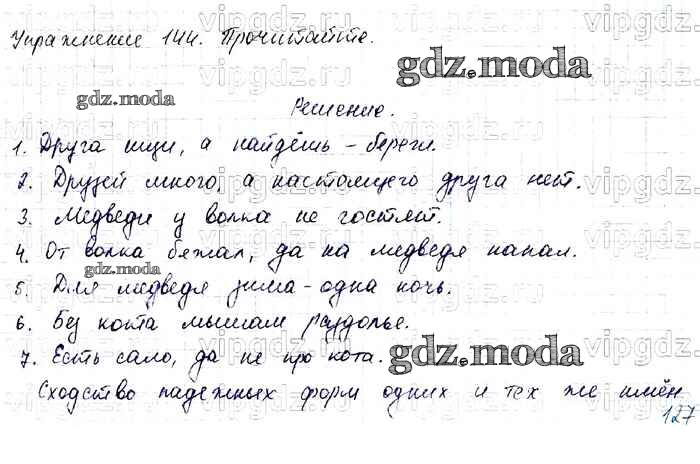 Упражнение 144. Прочитайте.
gdz.moda
gdz.moda
Решение.
1. Друга ищи, а найдёшь - береги.
2. Друзей много, а настоящего друга нет.
3. Медведи у волка не гостят.
4. От волка бежал, да на медведя напал.
gdz.moda
5. Для медведя зима - одна ночь.
6. Без кота мышам раздолье.
7. Есть сало, да не про кота.
gdz.moda
Сходство падежных форм одних и тех же имён
127